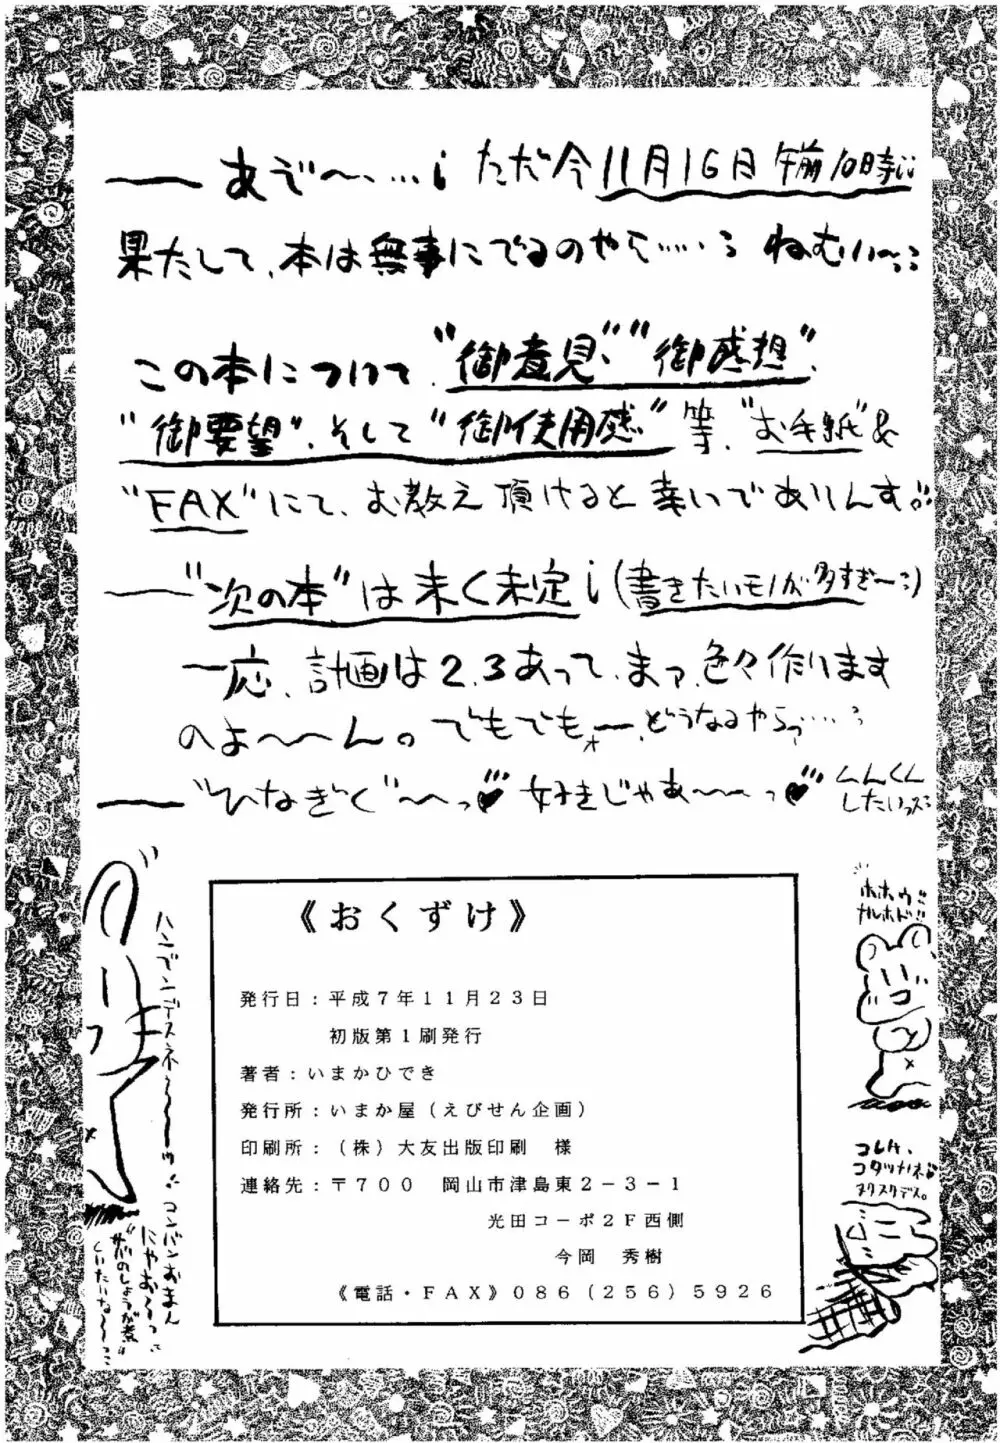 あぞ〜、…¡ ただ今11月16日午前10時¡¡
果たして、本は無事にでるのやら……？ ねむい〜？
この本について、"御意見"、"御感想"、
"御要望"、そして"御使用感"等、"お手紙"&
"FAX"にて、お教え頂けると幸いでありんす。
"次の本"は未く未定¡（書きたいモノが多すぎ〜？）
一応、計画は2、3あって、まァ、色々作ります
のよ〜〜ん。でもでもォー、どうなるやらっ……？
"ひなぎく"〜っ♥ 好きじゃあ〜〜っ♥
くんくん
したいっス
《おくずけ》
発行日：平成７年１１月２３日
初版第１刷発行
著者：いまかひでき
発行所：いまか屋（えびせん企画）
印刷所：（株）大友出版印刷　様
連絡先：〒７００　岡山市津島東２－３－１
光田コーポ２Ｆ西側
今岡　秀樹
《電話・ＦＡＸ》０８６（２５６）５９２６
ホホウ
ナルホド
コレハ、
コタツナネコ
ヌクヌクデス。
ハンブンデスネ〜〜ッ
コンバンおまん
にゃお〜っ
"サバのしょうが煮"
くいたいね〜っ